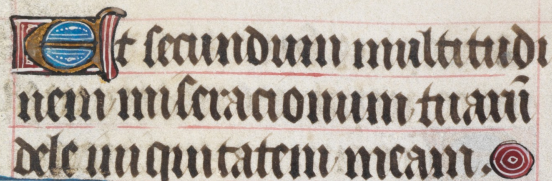 Et secundum multitudi
nem miseracionum tuarū
dele iniquitatem meam.